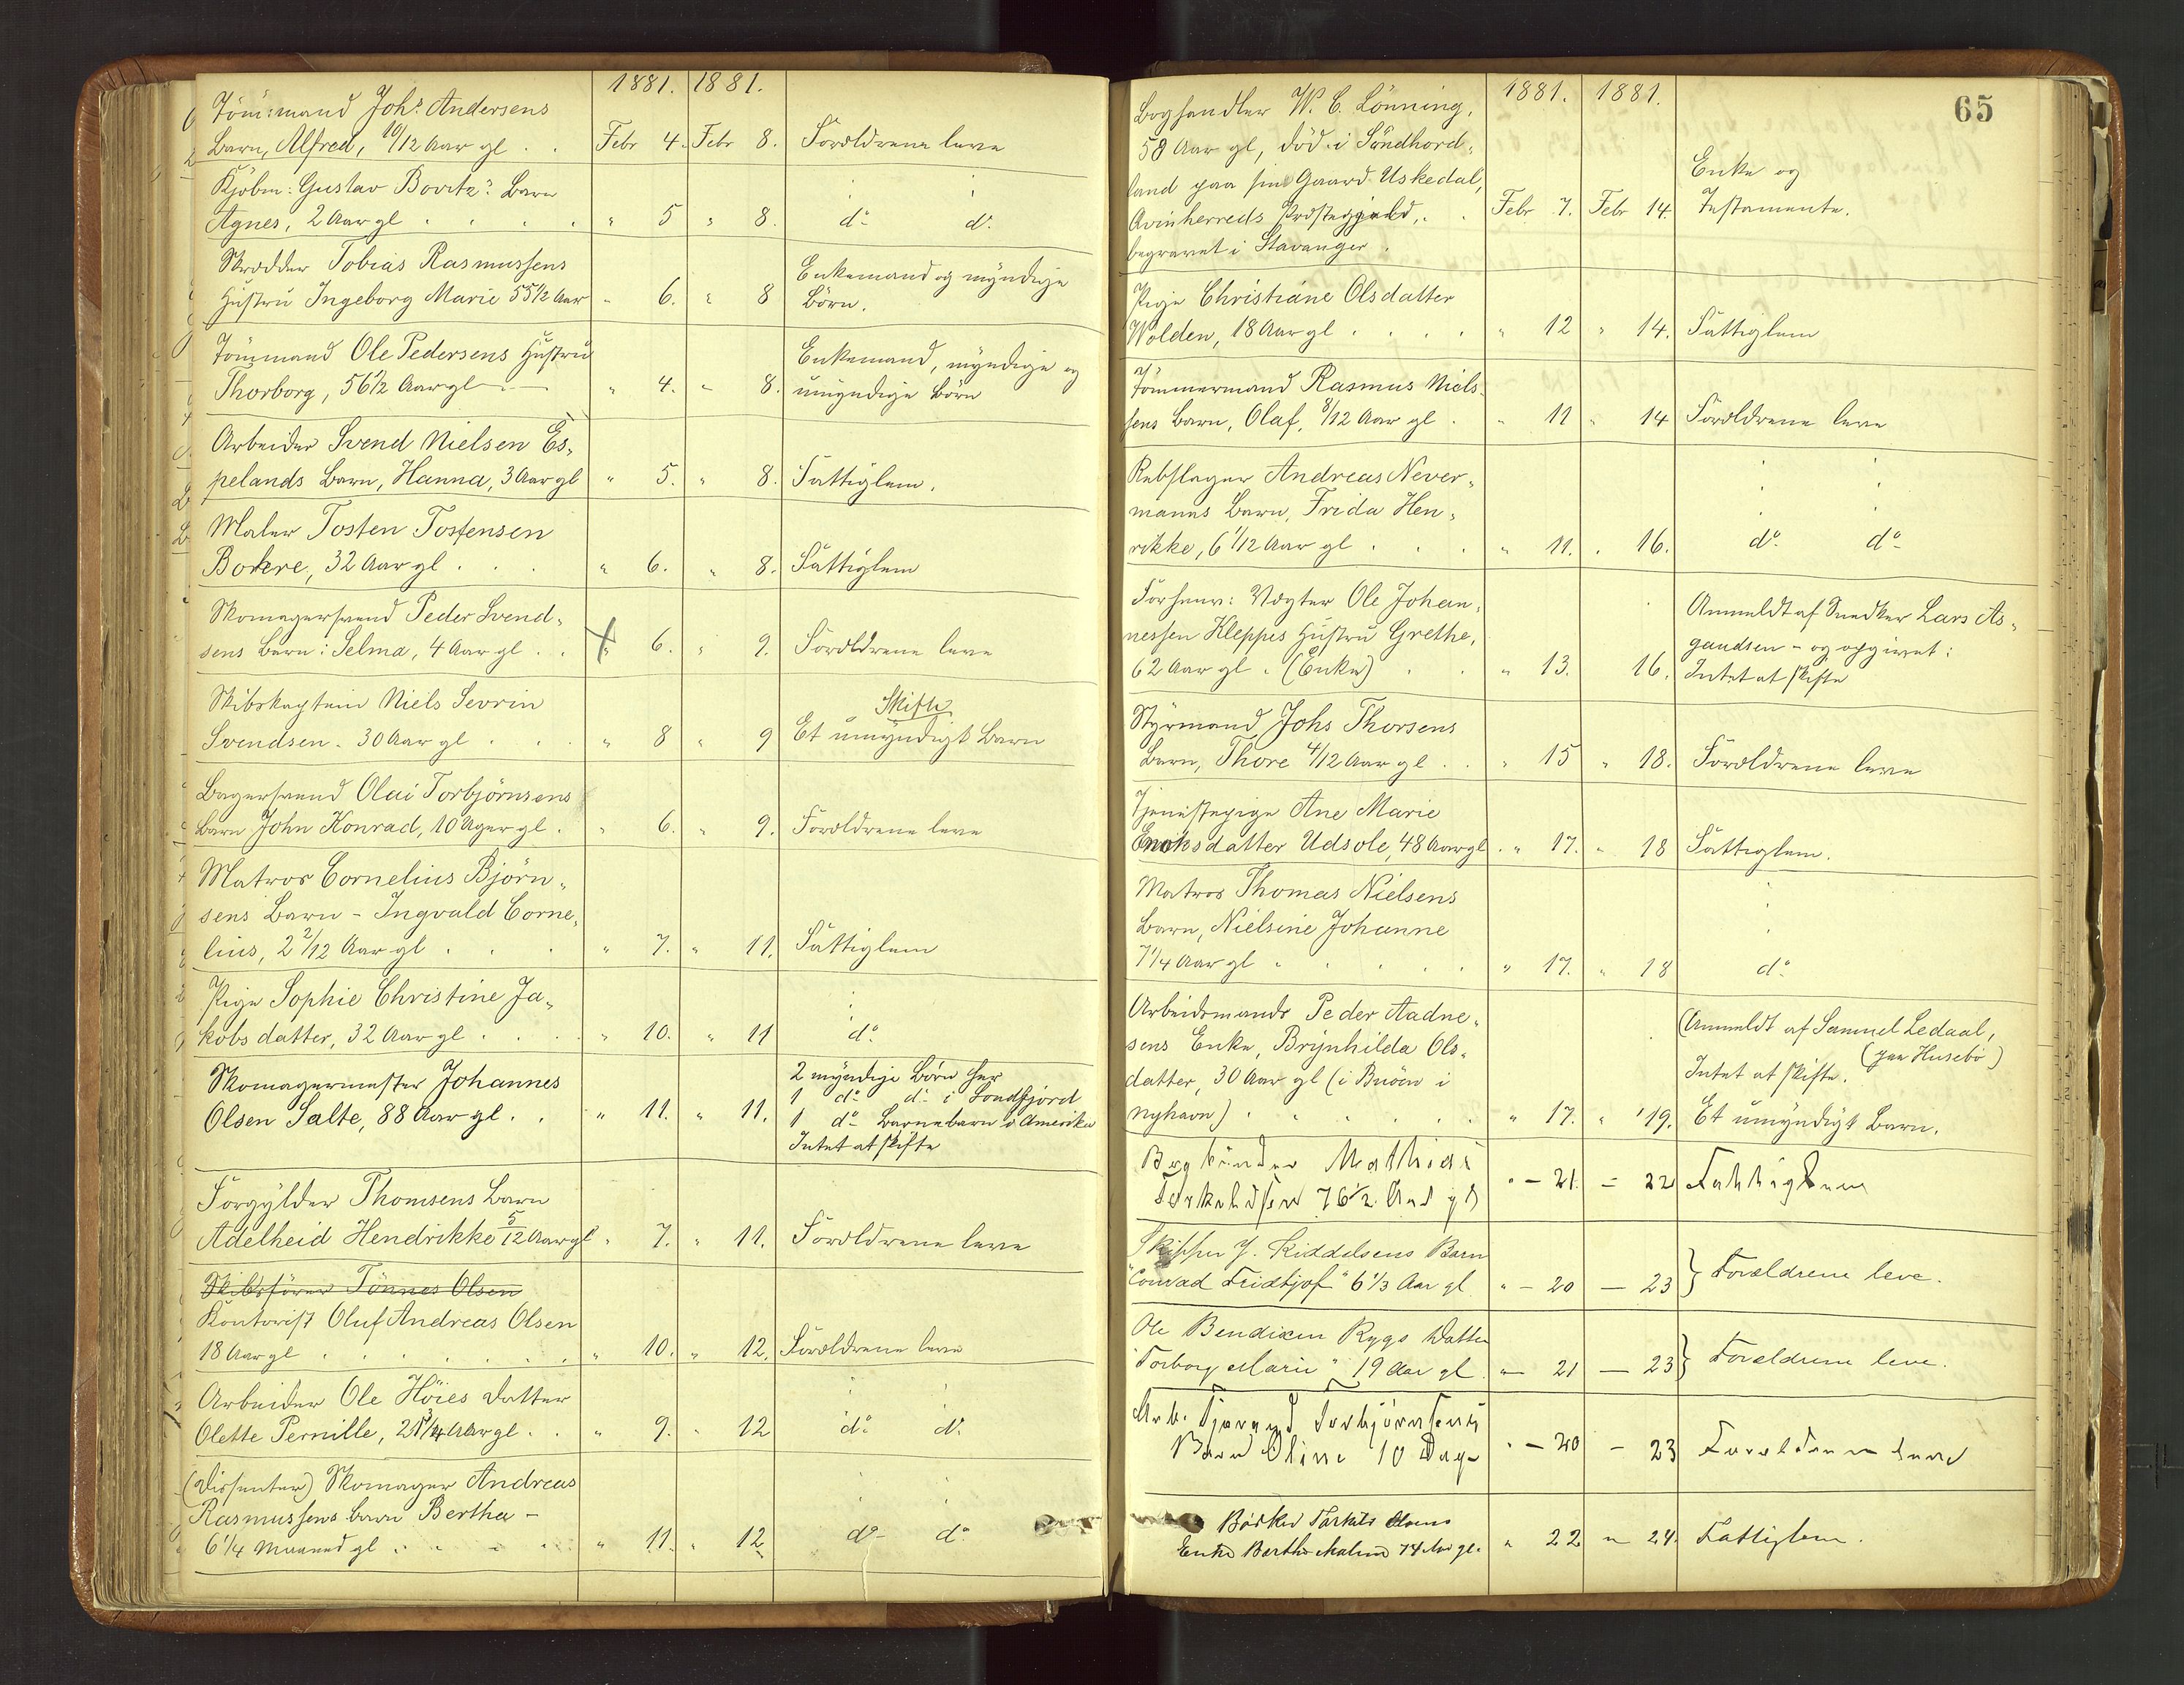 1881. 1881.
Tömmand Johs. Andersens
Barn, Alfred, 10/12 Aar gl . . Febr 4. Febr 8. Forældrene leve
Kjöbm: Gustav Bovitz's Barn
Agnes, 2 Aar gl . . . . " 5 " 8. do do
Skrædder Tobias Rasmussens
Hustru Ingeborg Marie 55 1/2 Aar " 6. " 8 Enkemand og myndige
Börn.
Tömmand Ole Pedersens Hustru
Thorborg, 56 1/2 Aar gl " 4. " 8. Enkemand, myndige og
umyndige Börn
Arbeider Svend Nielsen Es-
pelands Barn, Hanna, 3 Aar gl " 5. " 8. Fattiglem.
Maler Tosten Tostensen
Bokere, 32 Aar gl . . . " 6. " 8. Fattiglem
Skomagersvend Peder Svend-
sens Barn: Selma, 4 Aar gl . . " 6. " 9. Forældrene leve
Skibskaptein Niels Sevrin
Svendsen. 30 Aar gl . . . " 8 " 9 Skifte
Et umyndigt Barn
Bagersvend Olai Torbjörnsens
Barn John Konrad, 10 Uger gl . " 6. " 9. Forældrene leve
Matros Cornelius Björn-
sens Barn - Ingvald Corne-
lius, 2 2/12 Aar gl . . . " 7. " 11. Fattiglem
Pige Sophie Christine Ja-
kobsdatter, 32 Aar gl . . . . " 10. " 11 do
Skomagermester Johannes
Olsen Salte, 88 Aar gl . . " 11. " 11. 2 myndige Börn her
1 do do i Sondfjord
1 do Barnebarn i Amerika
Intet at skifte
Forgylder Thomsens Barn
Adelheid Hendrikke 5/12 Aar gl " 7. " 11. Forældrene leve
Skibsförer Tönnes Olsen
Kontorist Oluf Andreas Olsen
18 Aar gl . . . . . . . " 10. " 12. Forældrene leve
Arbeider Ole Höies Datter
Olette Pernille, 21 3/4 Aar gl . . " 9. " 12 do do
(Dissenter) Skomager Andreas
Rasmussens barn Bertha -
6 1/4 Maaned gl . . . . " 11. " 12 do do
65
1881. 1881.
Boghandler W. C. Lönning,
58 Aar gl, död i Söndhord-
land paa sin Gaard Uskedal,
Qvinherreds Præstegjeld, . . Febr 7. Febr 14. Enke og
Testamente.
begravet i Stavanger.
Pige Christiane Olsdatter
Wolden, 18 Aar gl . . . . " 12 " 14. Fattiglem
Tömmermand Rasmus Niels-
sens Barn, Olaf, 8/12 Aar gl . " 11 " 14 Forældrene leve
Rebslager Andreas Never-
manns Barn, Frida Hen-
rikke, 6 1/12 Aar gl . . . " 11. " 16. do do
Forhenv: Vægter Ole Johan-
nessen Klepps Hustru Grethe,
62 Aar gl . (Enke) . . " 13. 16. Anmeldt af Snedker Lars As-
gaudsen - og opgivet:
Intet at skifte
Styrmand Johs Thorsens
Barn, Thore 4/12 Aar gl . . " 15 " 18. Forældrene leve
Tjenestepige Ane Marie
Enoksdatter Udsole, 48 Aar gl . " 17. " 18 Fattiglem.
Matros Thomas Nielsens
Barn, Nielsine Johanne
7 1/4 Aar gl . . . . . " 17. " 18 do
Arbeidsmands Peder Aadne-
sens Enke, Brynhilda Ols-
datter, 30 Aar gl (i Buöen i
Nyhavn) . . . . . . " 17. " 19. (Anmeldt af Samuel Ledaal,
(paa Husebö)
Intet at skifte.
Et umyndigt Barn.
Bogbinder Mathias
Torkeldsen 76 1/2 Aar gl " - 21. - 22 Fattiglem
Skipper J. Kiddelsens Barn
"Conrad Fridtjof" 6 1/3 Aar gl " - 20 - 23 } Forældrene leve.
Ole Bendixen Rygs Datter
"Torborg Marie" 19 Aar gl " - 21 - 23 } Forældrene leve.
Arb. Tjerand Torbjörnsens
Barn Oline 10 Dage " - 20 - 23 Forældrene leve
Bödker Torkild Olsens
Enke Berthe Malene 74 Aar gl. " 22 " 24. Fattiglem.